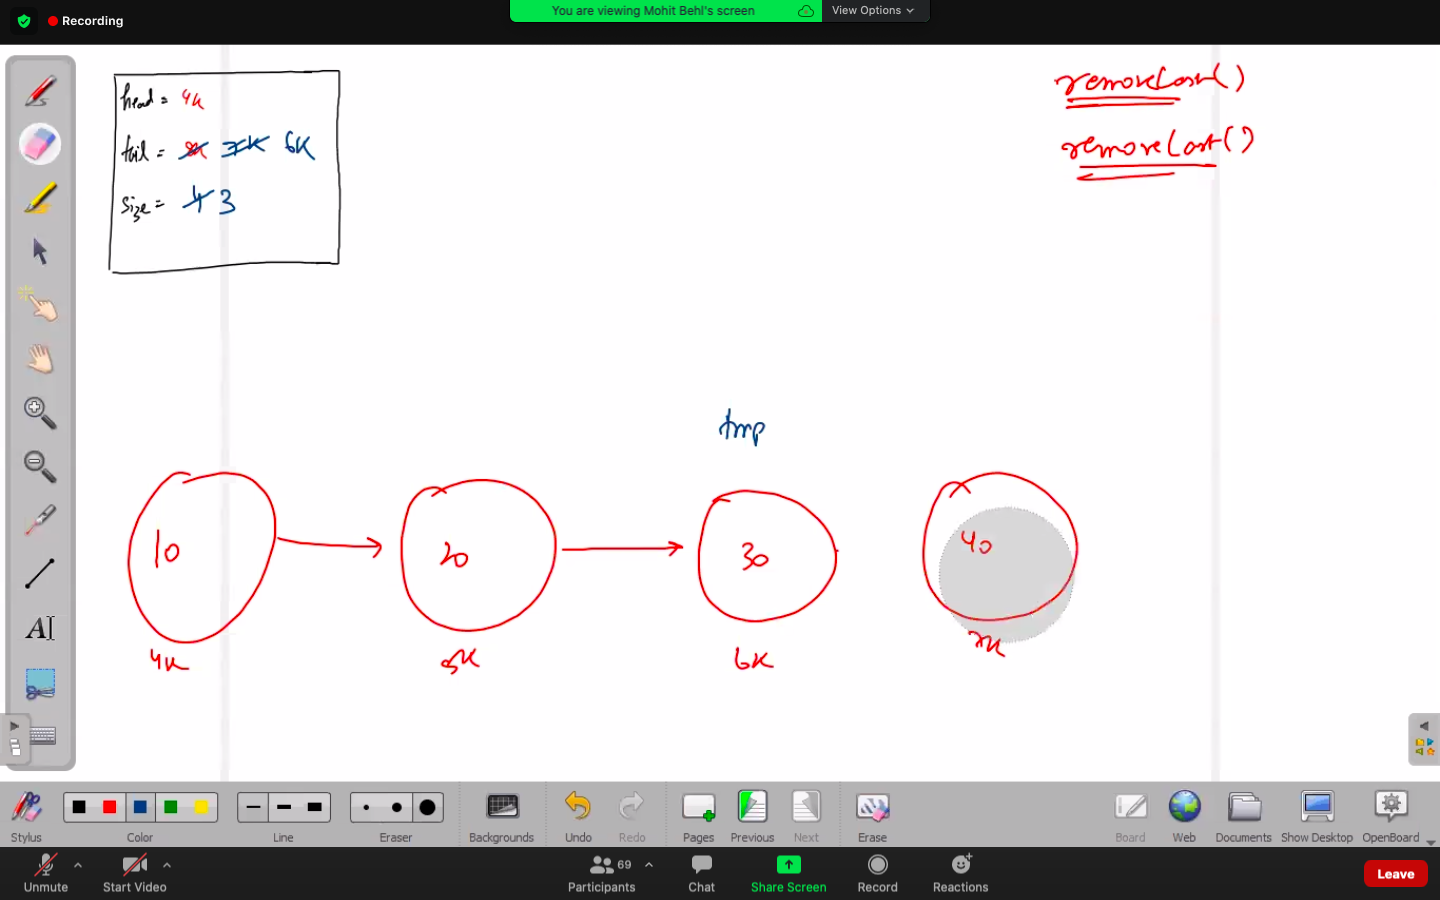 Recording
You are viewing Mohit Behl's screen
View Options
head = 4K
tail = 8K 7K 6K
size = 4 3
removeLast()
removeLast()
tmp
10
20
30
40
4K
5K
6K
7K
A
Stylus
Color
Line
Eraser
Backgrounds
Undo
Redo
Pages
Previous
Next
Erase
Board
Web
Documents
Show Desktop
OpenBoard
Unmute
Start Video
Participants
69
Chat
Share Screen
Record
Reactions
Leave